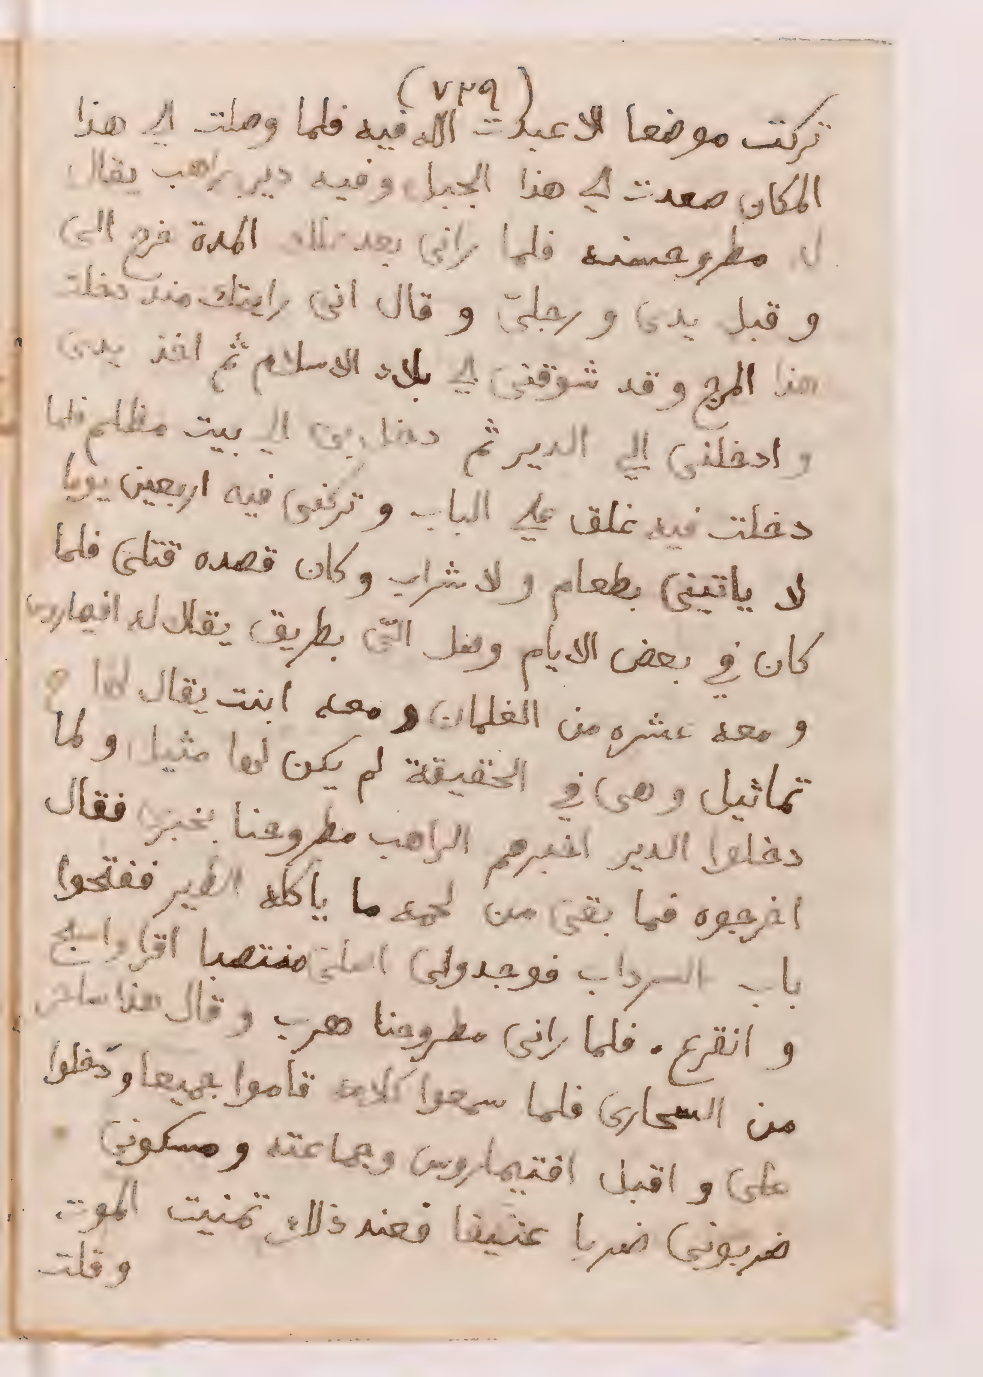 (٧٢٩)
تركت موضعا الا عبدت الله فيه فلما وصلت الي هذا
المكان صعدت الي هذا الجبل وفيه دير براهب يقال
له مطروحنه فلما رانى بعد تلك المدة فرح الىّ
و قبل يدى و رجلىّ و قال انى رايتك منذ دخلت
هذا المرج و قد شوقتنى الي بلاد الاسلام ثم اخذ يدى
و ادخلنى الي الدير ثم دخل بى الي بيت مظلم فلما
دخلت فيه غلق على الباب و تركنى فيه اربعين يوما
لا ياتينى بطعام و لا شراب و كان قصده قتلى فلما
كان في بعض الايام وصل الىّ بطريق يقال له
و معه عشره من الغلمان و معه ابنت يقال لها
تماثيل و هى في الحقيقة لم يكن لها مثيل و لما
دخلوا الدير اخبرهم الراهب مطروحنا بخبرى فقال
اخرجوه فما بقى من لحمه ما يأكله الطير ففتحوا
باب السرداب فوجدونى اصلى منتصبا اقرا و اسبح
و اتضرع . فلما رانى مطروحنا هرب و قال هذا ساحر
من السحارى فلما سمعوا كلامه قاموا جميعا و دخلوا
على و اقبل افتيماروس و جماعته و مسكونى
ضربونى ضربا عنيفا فعند ذلك تمنيت الموت
و قلت